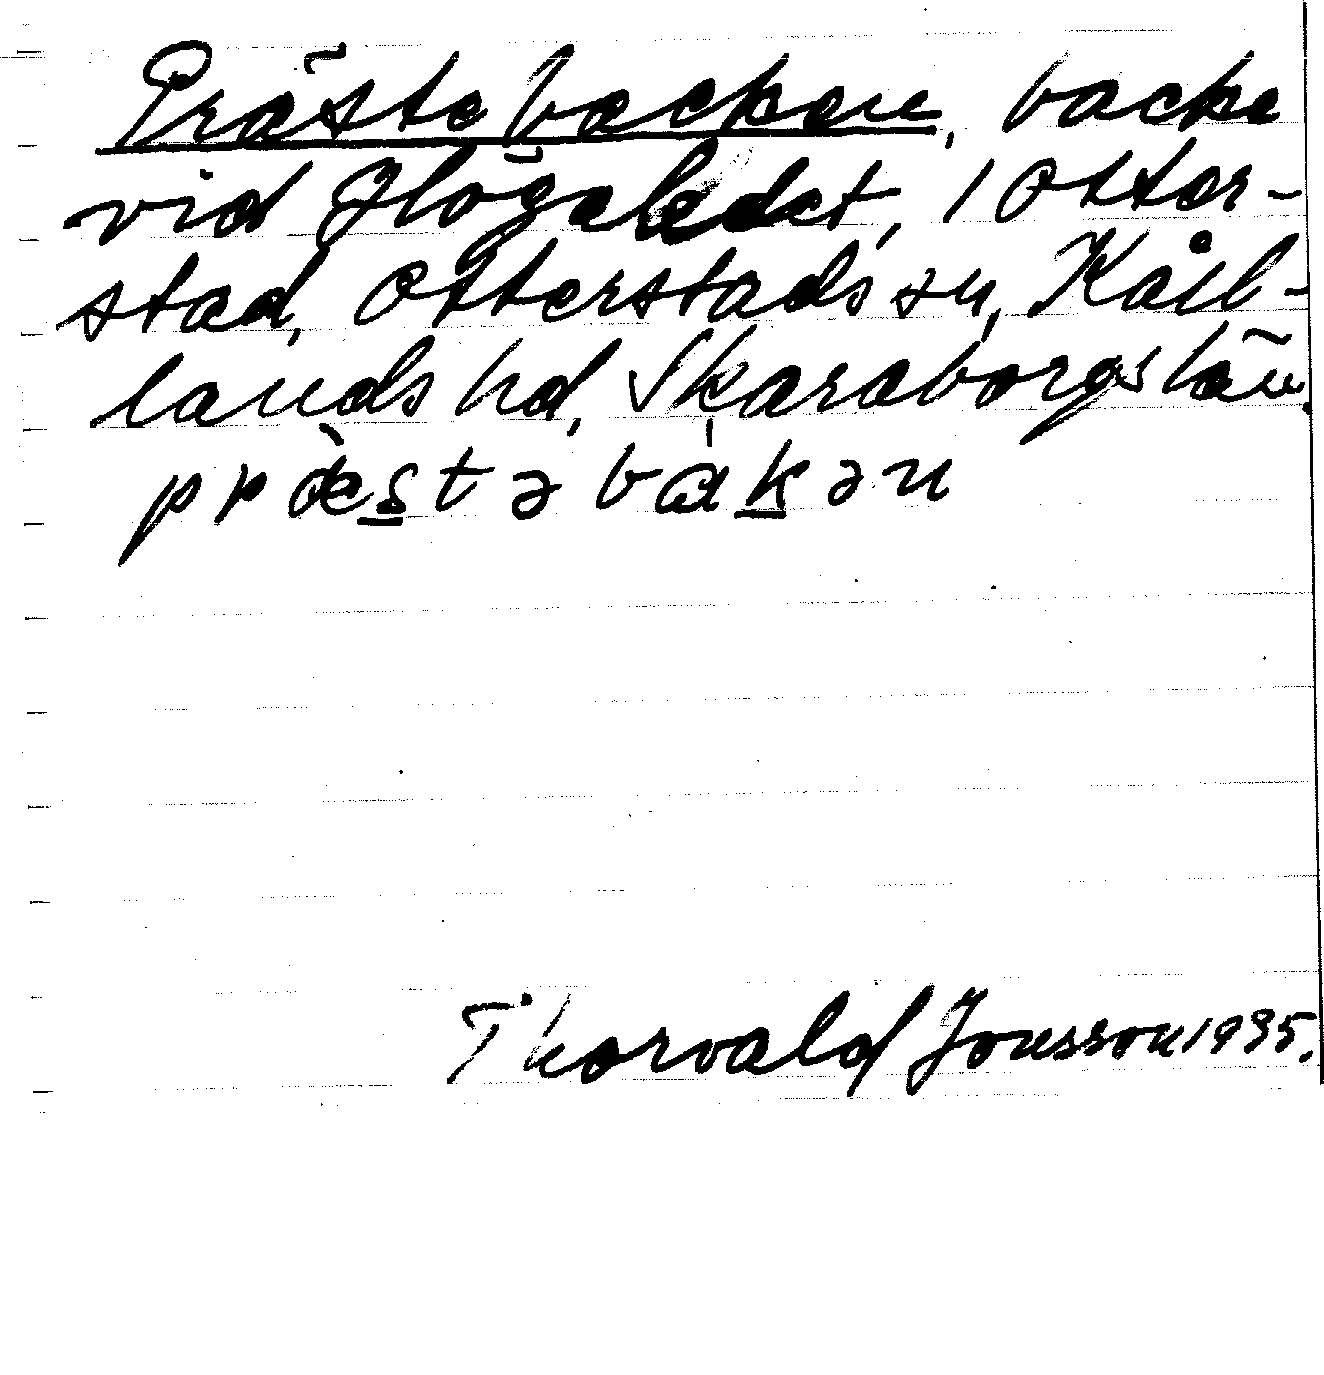 Prästebacken, backe
vid Högaledet, i Otter-
stad, Otterstads sn, Kål-
lands hd, Skaraborgs län.
præstə bakən
Thorvald Jonsson 1935.